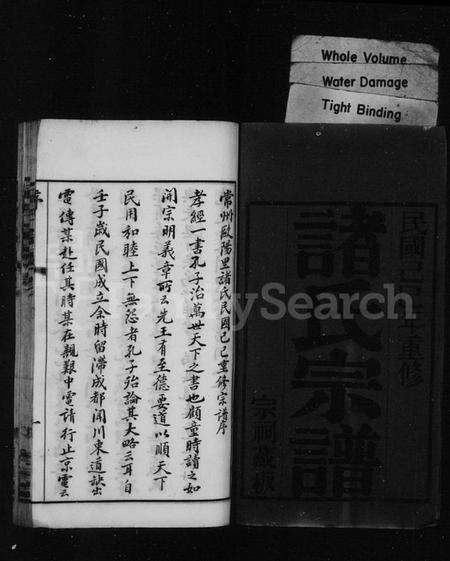 Whole Volume
Water Damage
Tight Binding
民國己巳年重修
諸氏宗譜
宗祠藏板
常州歐陽里諸氏民國己巳重修宗譜序
孝經一書孔子治萬世天下之書也顧童時讀之如
開宗明義章所云先王有至德要道以順天下
民用和睦上下無怨者孔子殆論其大略云耳自
壬子歲民國成立余時留滯成都聞川東道缺出
電傳某赴任其時某在親艱中電請行止京電云
FamilySearch